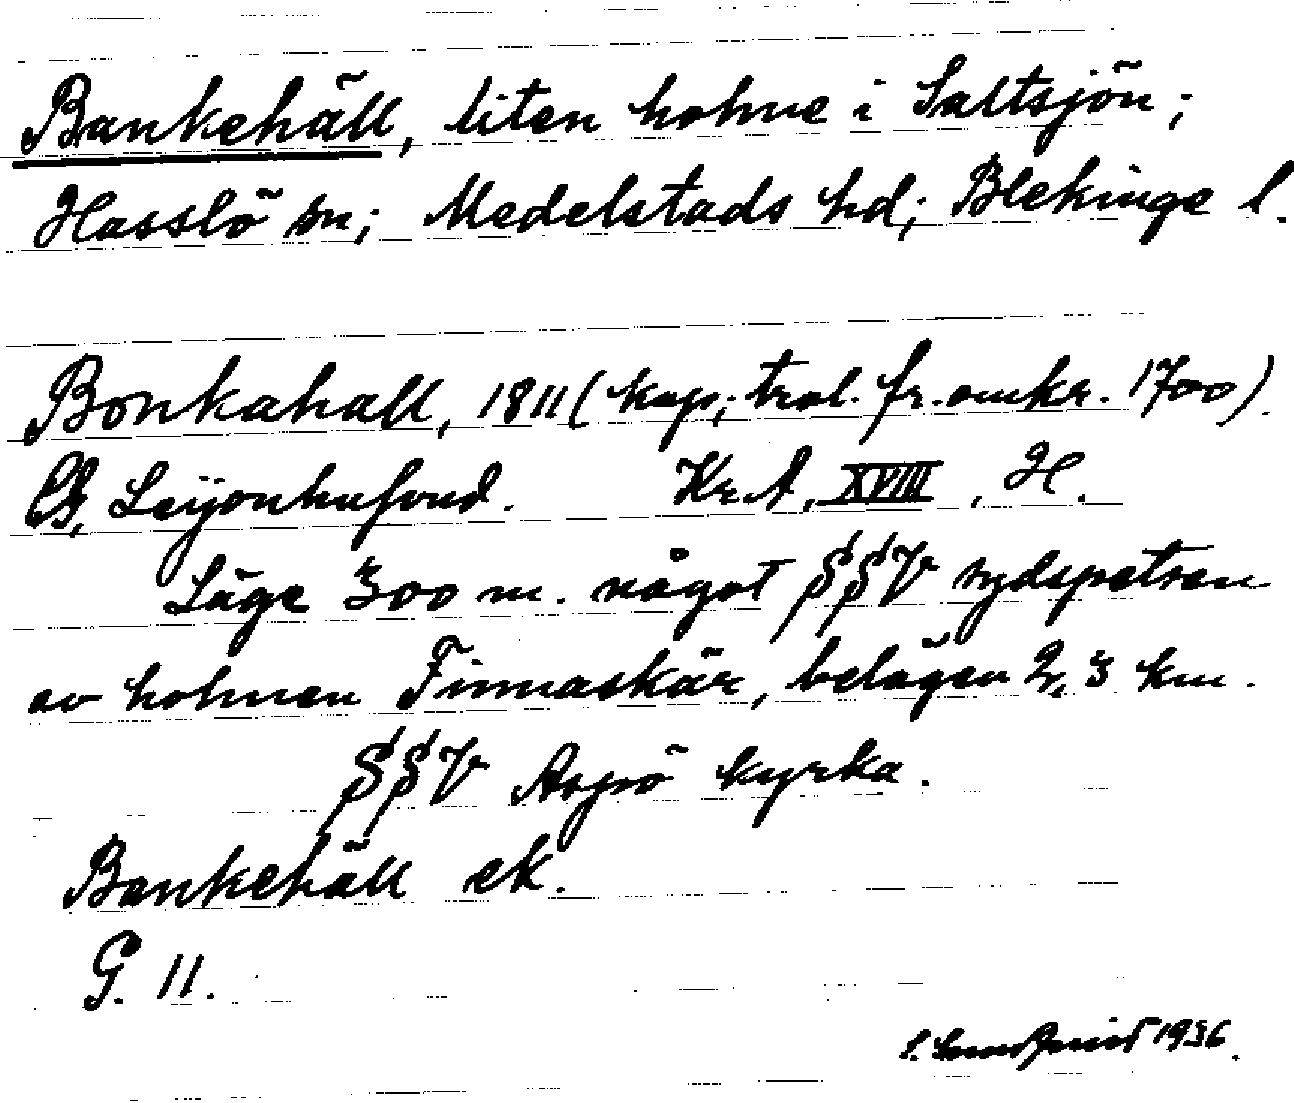 Bankehäll, liten holme i Saltsjön;
Hasslö sn; Medelstads hd; Blekinge l.
Bonkahall, 1811 (kop; trol. fr. omkr. 1700).
Leijonhufvud. Kr.A, XVIII, H.
Läge 300 m. något SSV sydspetsen
av holmen Finnaskär, belägen 2,3 km.
SSV Aspö kyrka.
Bankehäll ek.
G. 11.
1936.